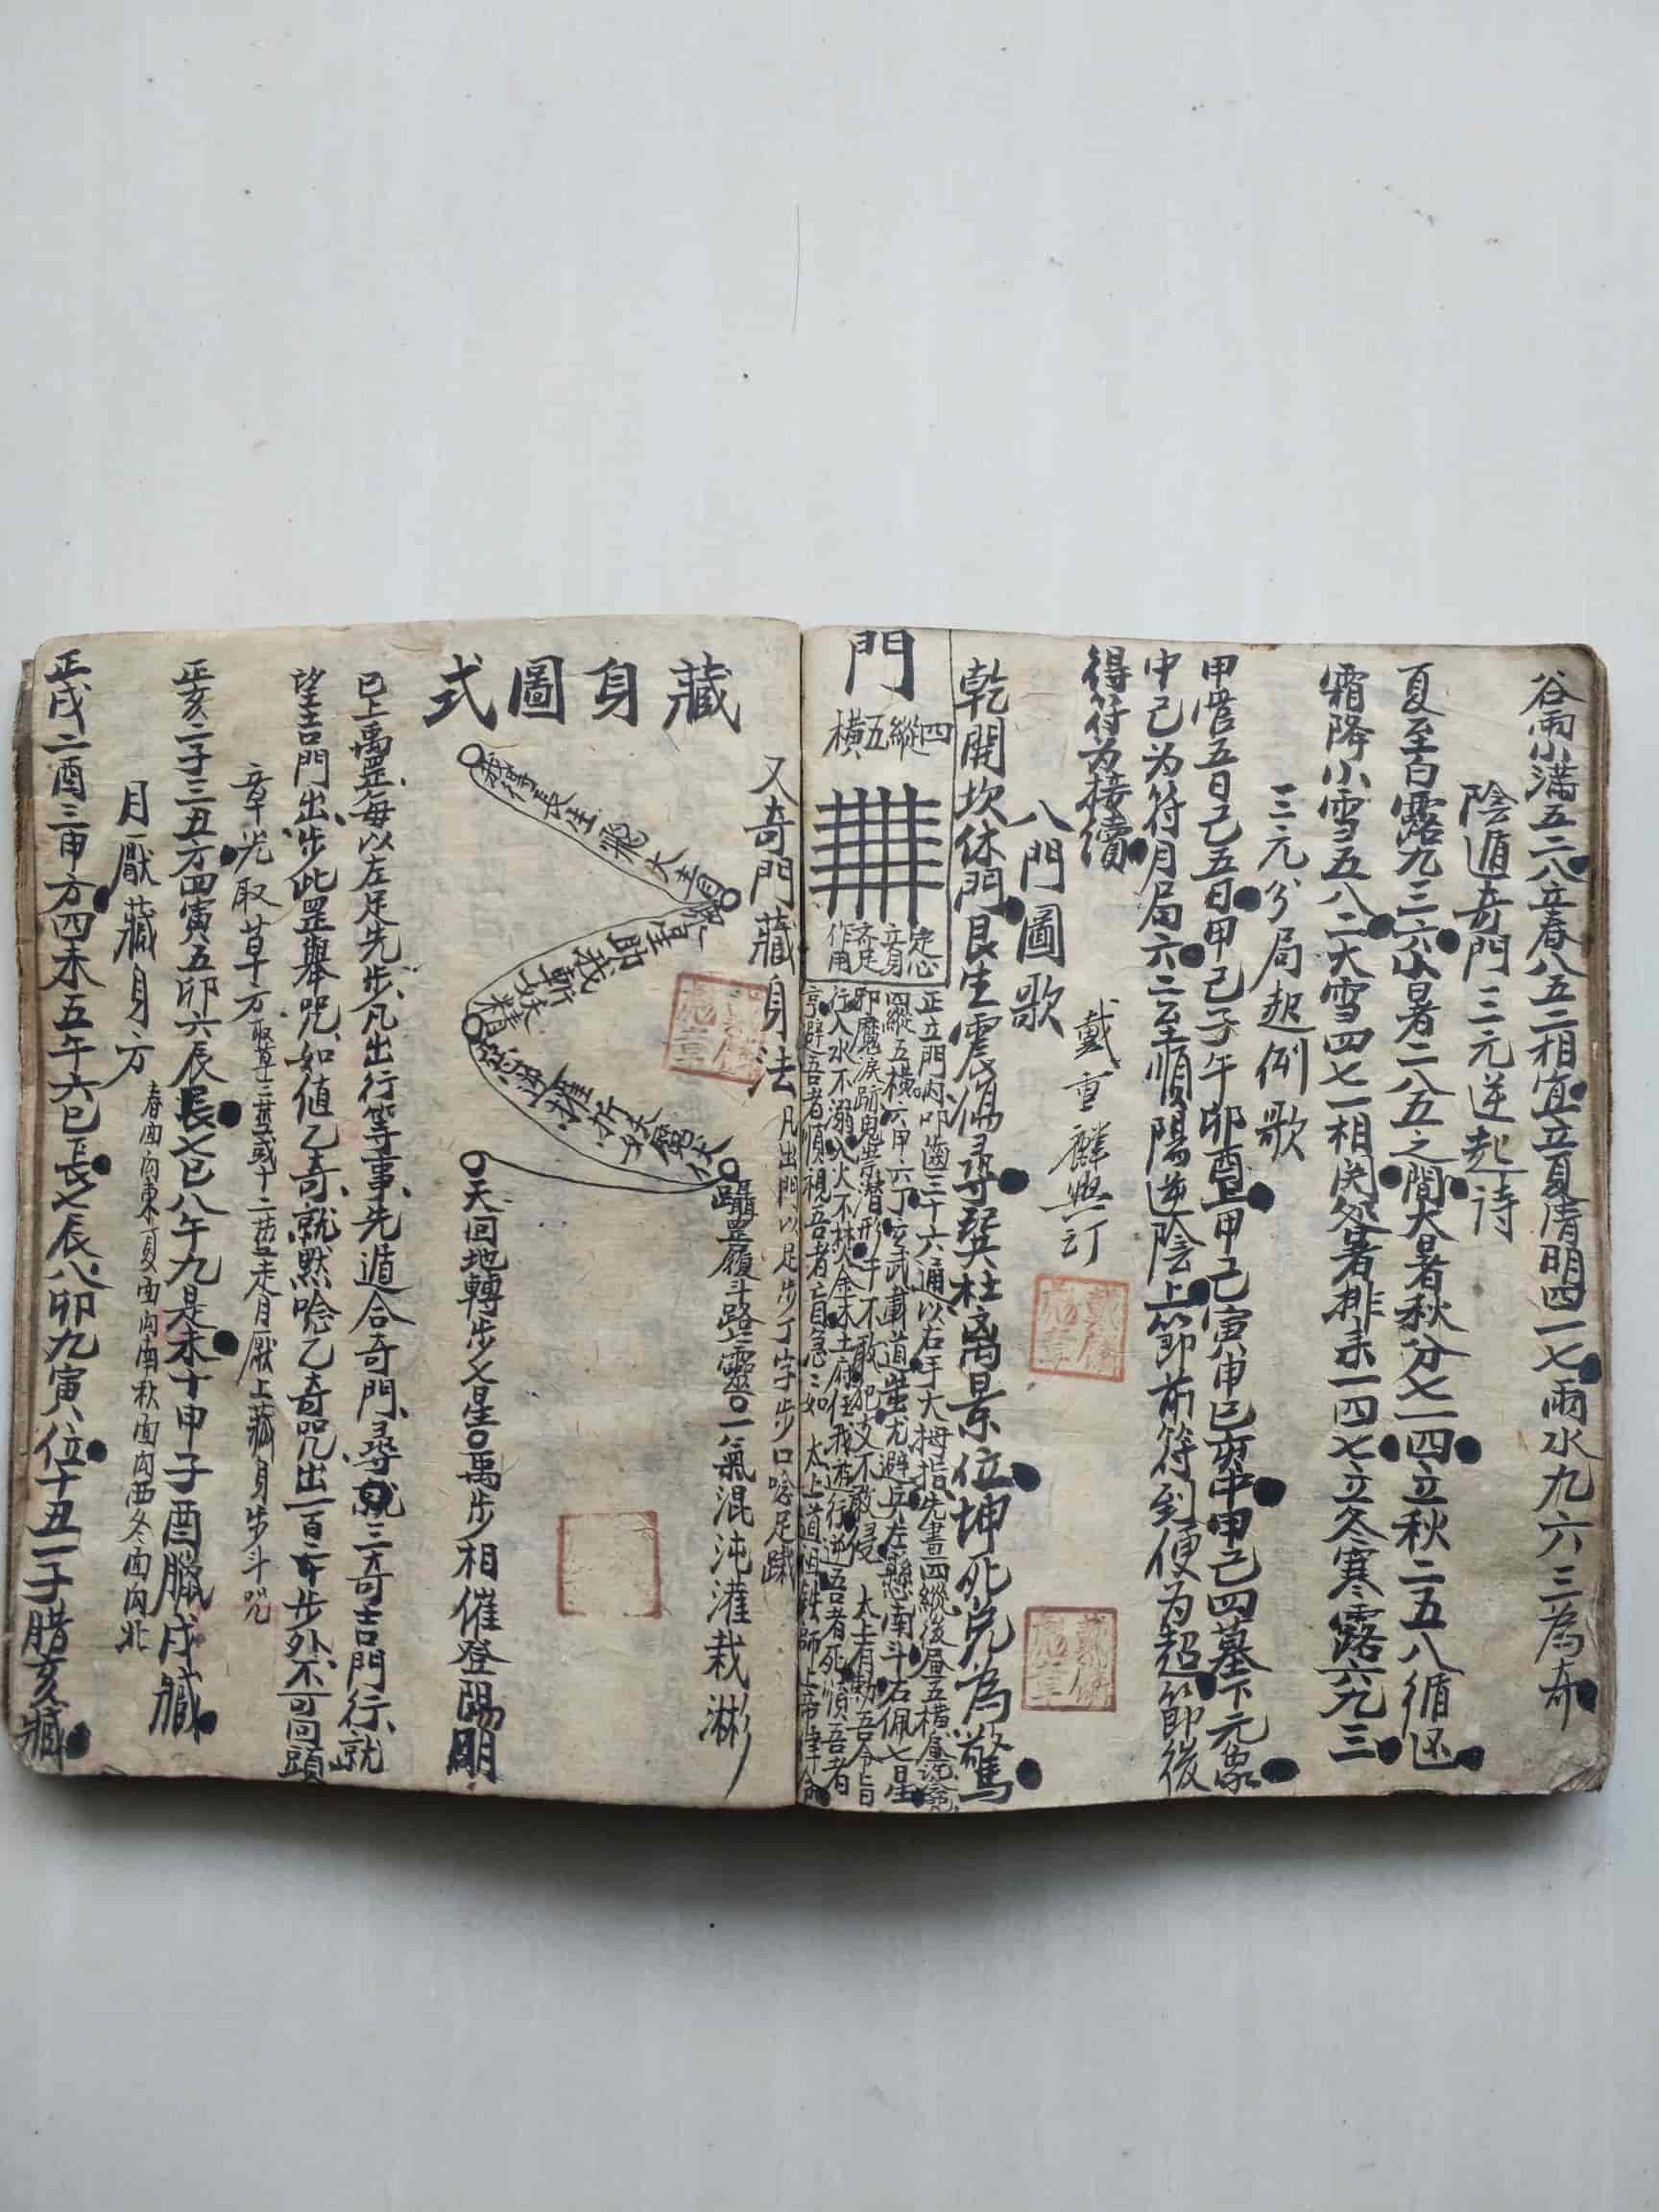 谷雨小满五二八立春八五二相宜立夏清明四一七雨水九六三為奇
陰遁奇門三元逆起詩
夏至白露九三六小暑二八五之間大暑秋分七一四立秋二五八循
霜降小雪五八二大雪四七一相関处暑排来一四七立冬寒露六九三
三元分局起例歌
甲管五日己五日甲己子午卯酉上甲己寅申巳亥中甲己四墓下元象
中己为符月局六二至順陽逆陰上節前符到便为超節後
得符为接續
戴重
八門圖歌
乾開坎休門艮生震傷尋巽杜离景位坤死兌為驚
門
四縱五橫
定心
立身
齐足
作用
正立門內叩齒三十六通以右手大拇指先畫四縱後畫五橫畫
四縱五橫六甲六丁玄武載道蚩尤避兵左懸南斗右佩七星
邪魔滅跡鬼祟潜形千不敢犯丈不敢侵太上有勅吾令
行入水不溺入火不焚金木土府任我遊行逆吾者死順吾者
亨避吾者順視吾者盲急二如太上道祖鉄師上帝律令
又奇門藏身法凡出門以足步丁字步口唸足踏
藏身圖式
躡罡履斗路三靈一氣混沌灌我
天回地轉步七星禹步相催登陽明
已上禹罡每以左足先步凡出行等事先遁合奇門尋就三奇吉門行就
望吉門出步此罡舉咒如值乙奇就黙唸乙奇咒出一百二十步外不可回頭
章光取草方取草三莖或十二莖走月厭上藏身步斗咒
正亥二子三丑方四寅五卯六辰長七巳八午九是未十申子酉臘戌臧
月厭藏身方春面向東夏面向南秋面向西冬面向北
正戌二酉三申方四未五午六巳長七辰八卯九寅位十丑一子腊亥臧